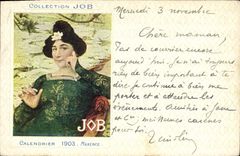 COLLECTION JOB
JOB
CALENDRIER 1903. MAXENCE
Mercredi 3 novembre
Chère maman,
Pas de courrier encore
aujourd'hui. Je n'ai toujours
rien de bien important à te
dire. Je continue à bien me
porter et à attendre les
évènements. Amitiés à Jane
et Cie; meilleures caresses
pour toi.